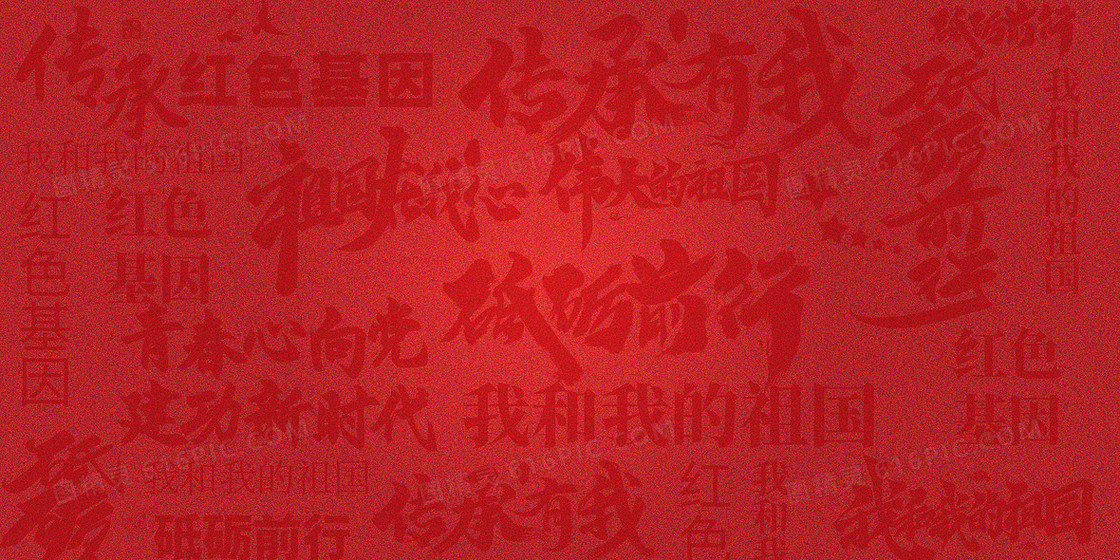 传承红色基因
传承有我
砥砺前行
砥砺前行
我和我的祖国
我和我的祖国
祖国
伟大的祖国
红色基因
红色
基因
砥砺前行
青春心向党
建功新时代
红色
基因
我和我的祖国
砥砺
我和我的祖国
传承有我
红色
我和我
我和我的祖国
砥砺前行
图精灵 616PIC.COM
图精灵 616PIC.COM
图精灵 616PIC.COM
图精灵 616PIC.COM
图精灵 616PIC.COM
图精灵 616PIC.COM